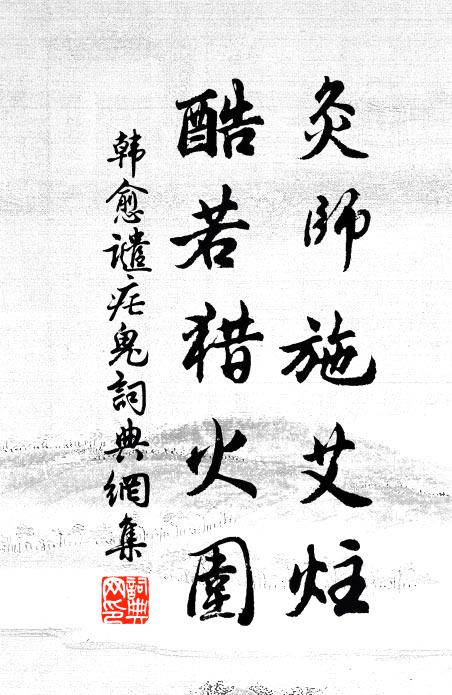 灸師施艾炷
酷若猎火圍
韩愈譴疟鬼詞典網集
詞典
网印